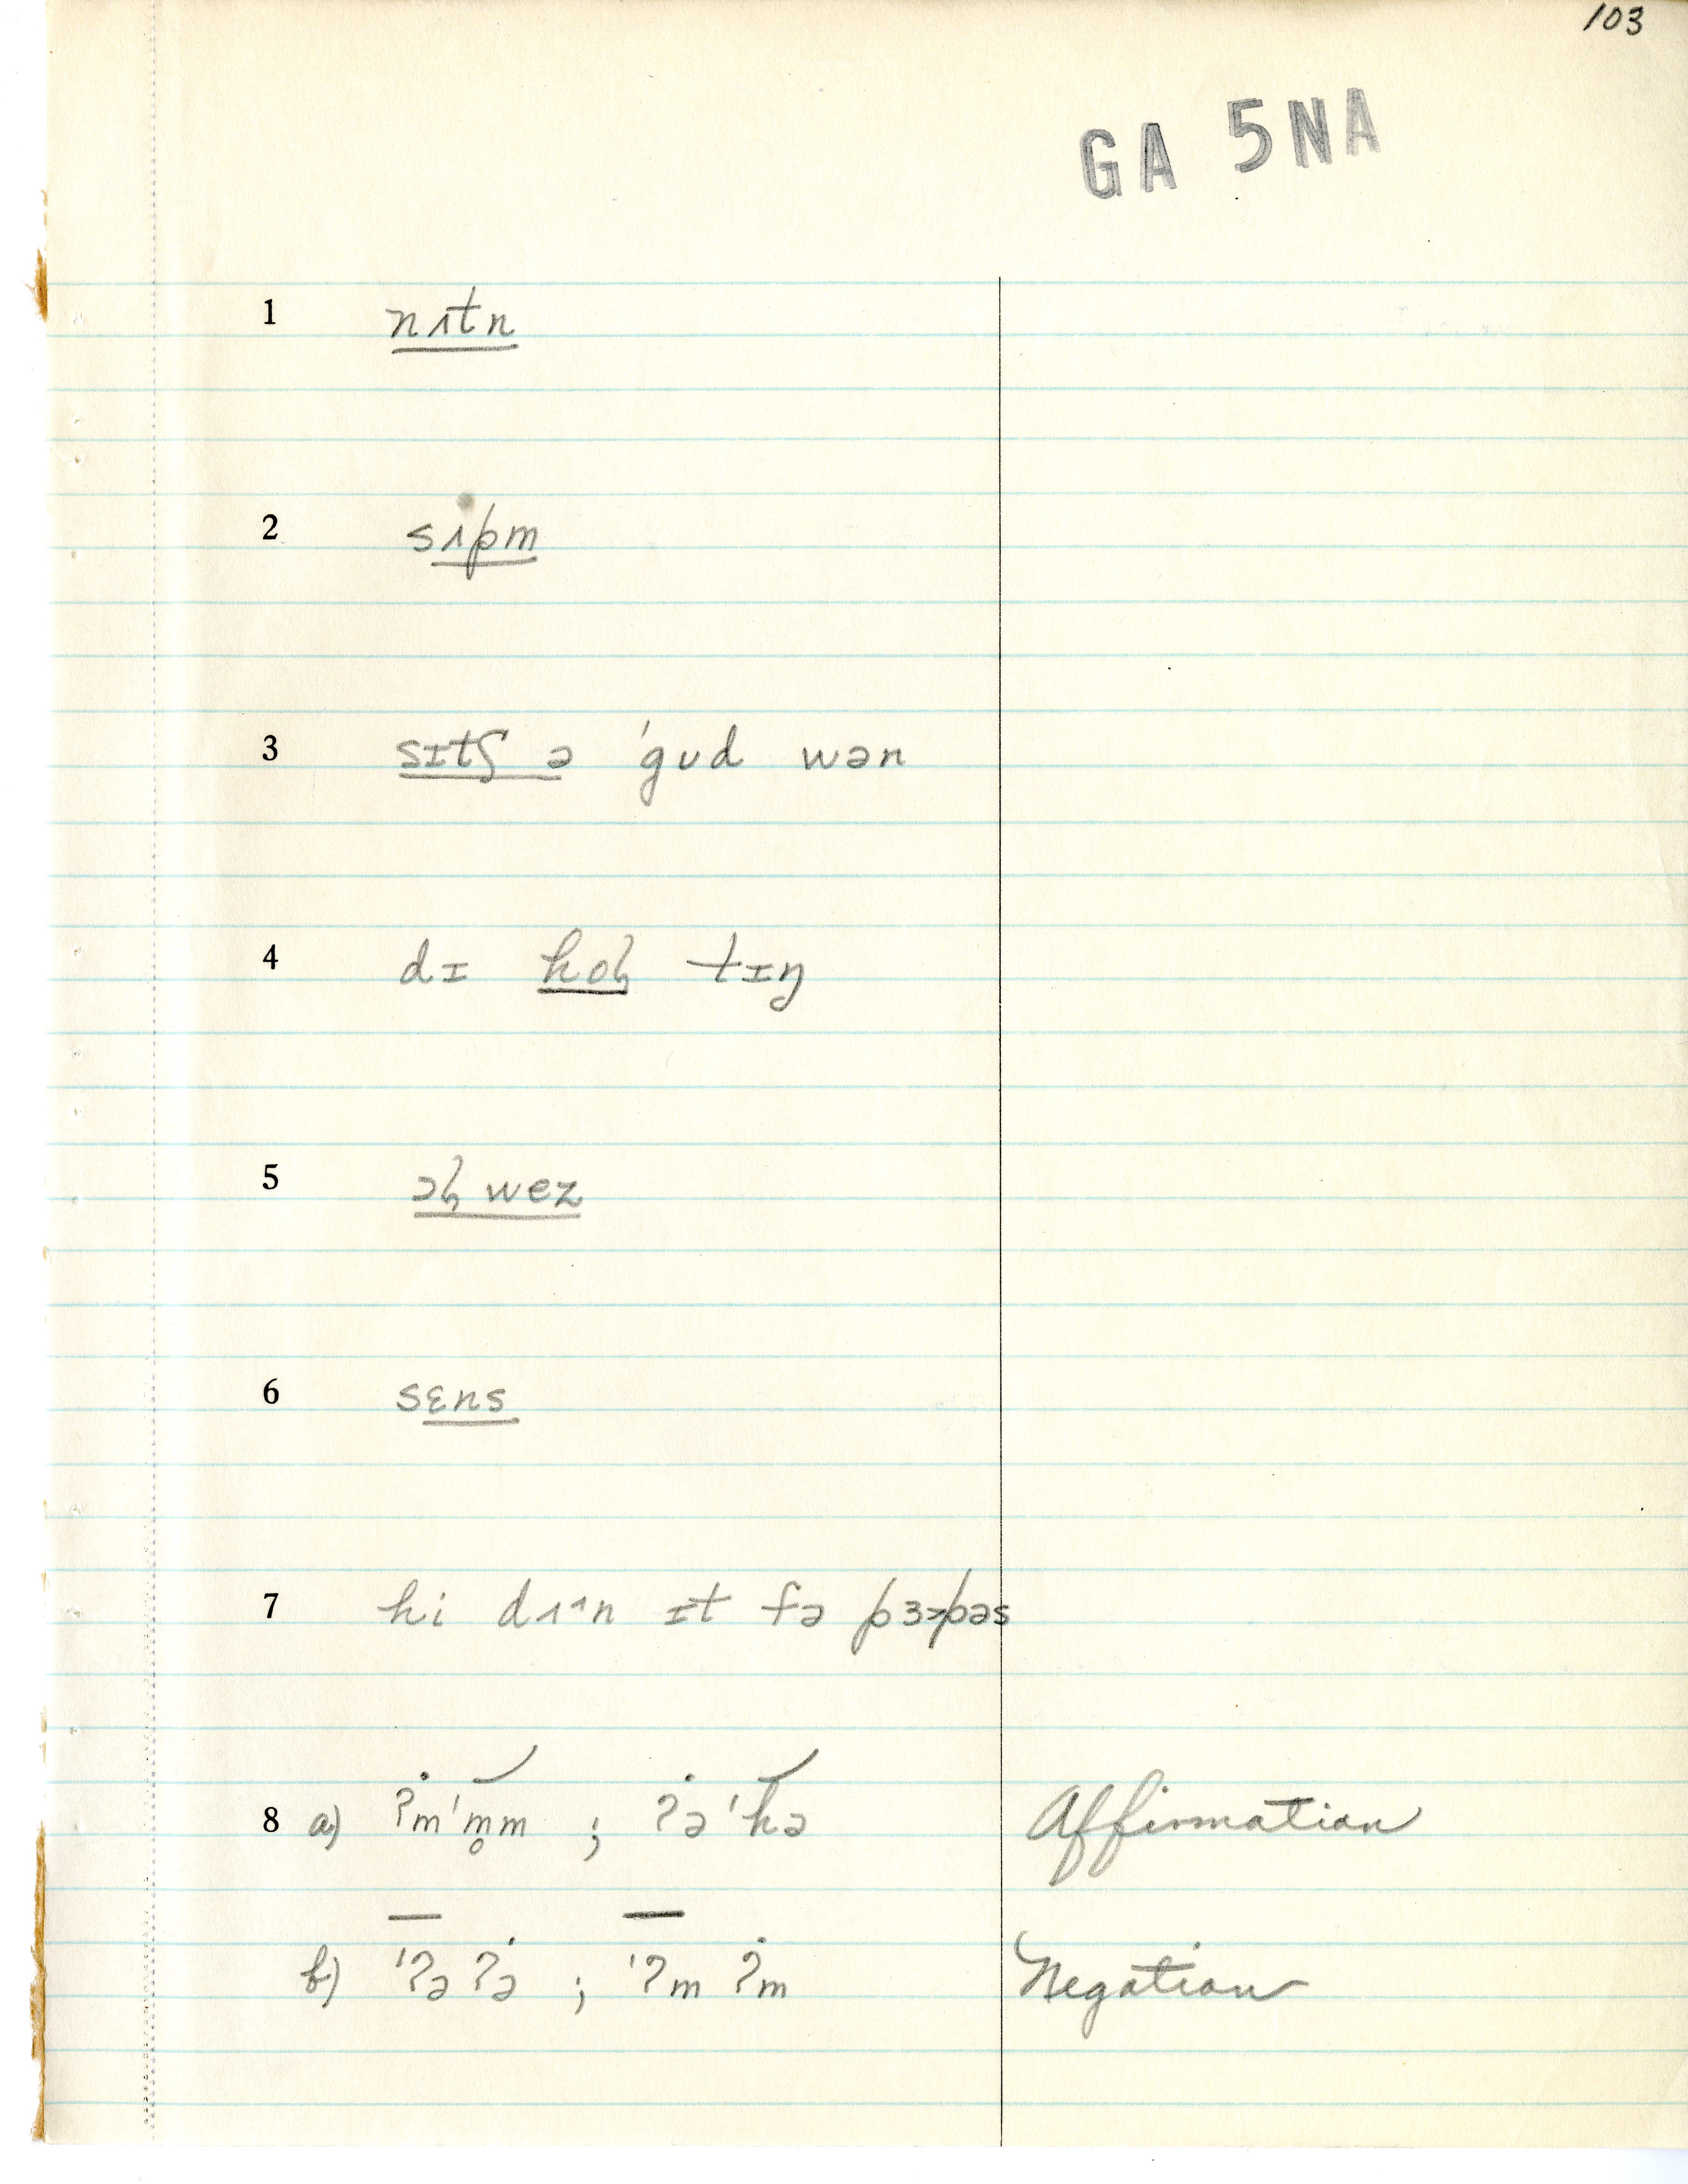 103
GA 5NA
1 nɪtn
2 sɪpm
3 sɪtʃ ə ˈgʊd wən
4 dɪ hoɫ tɪŋ
5 ɔɫ wez
6 sɛns
7 hi dɪˑˑn ɪt fə pɜɚpəs
8 a) ʔm̩ˈm̥m ; ʔəˈhə Affirmation
b) ˈʔə ʔə ; ˈʔm ʔm Negation